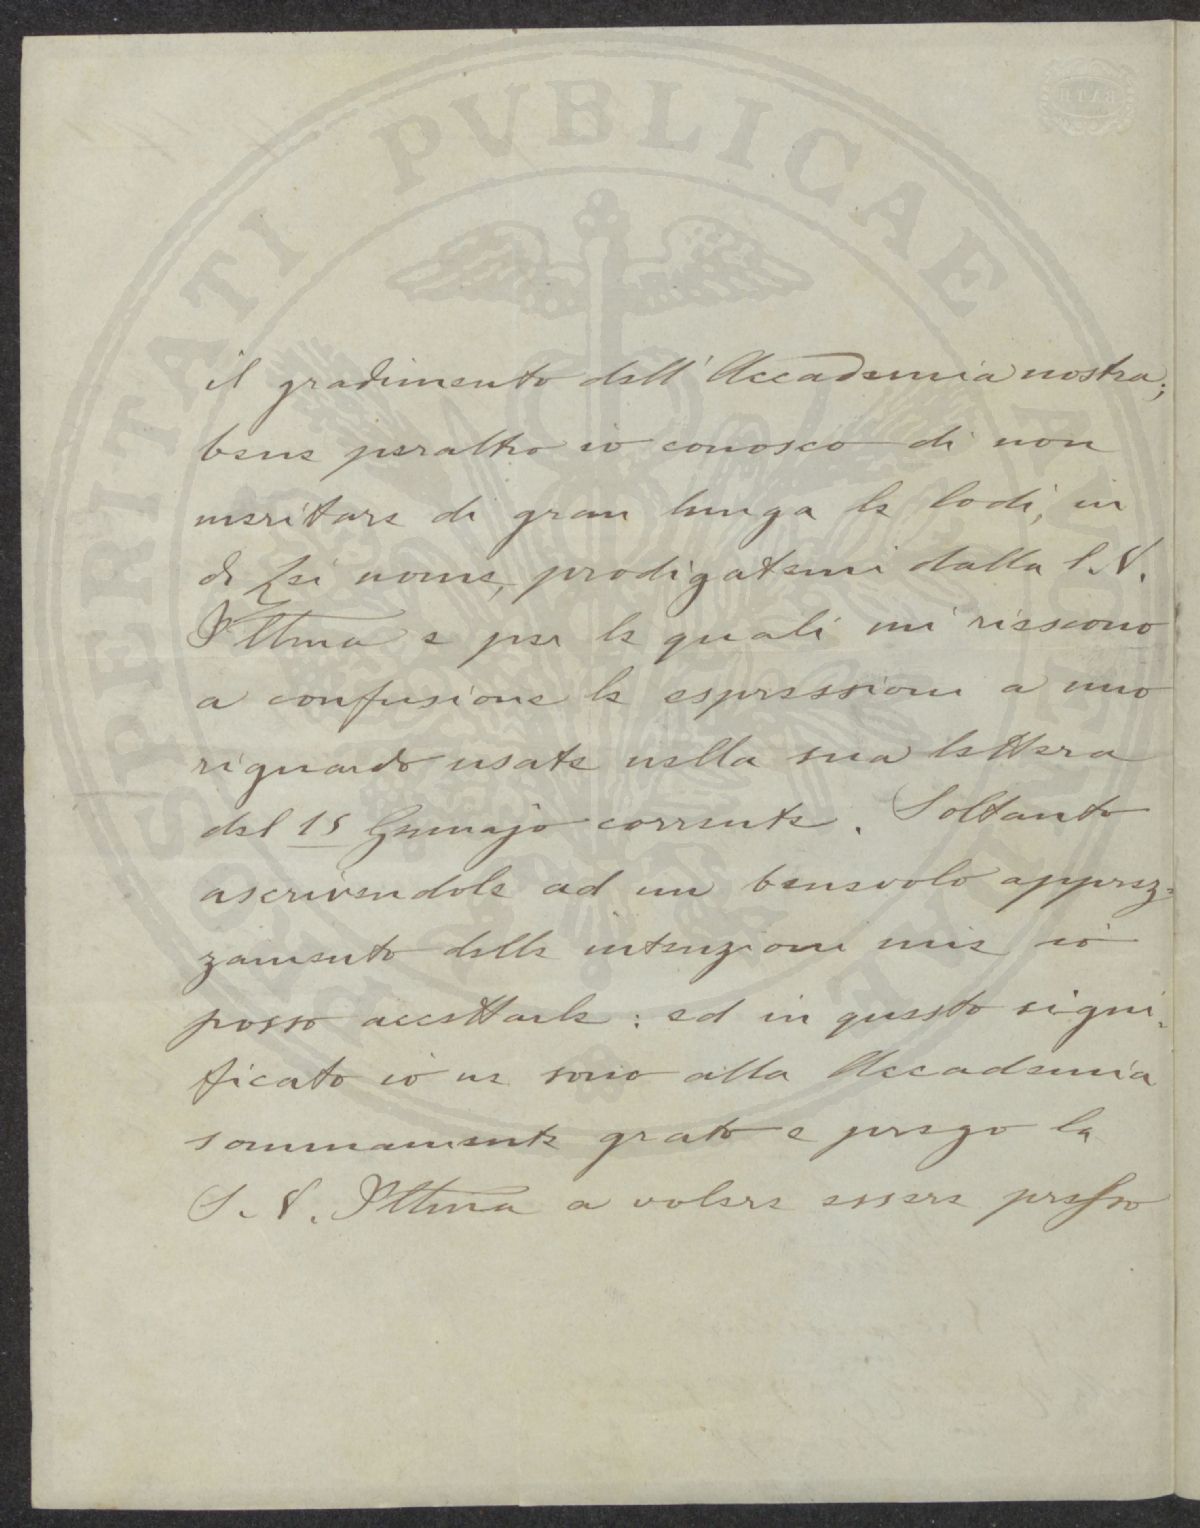 il gradimento dell'Accademia nostra;
bene peraltro io conosco di non
meritare di gran lunga le lodi, in
di Lei nome, prodigatemi dalla S. V.
Illma e per le quali mi riescono
a confusione le espressioni a mio
riguardo usate nella sua lettera
del 15 Gennajo corrente. Soltanto
ascrivendole ad un benevolo apprez=
zamento delle intenzioni mie io
posso accettarle: ed in questo signi-
ficato io ne sono alla Accademia
sommamente grato e prego la
S. V. Illma a volere essere presso
BATH
PROSPERITATI PVBLICAE AVGENDAE